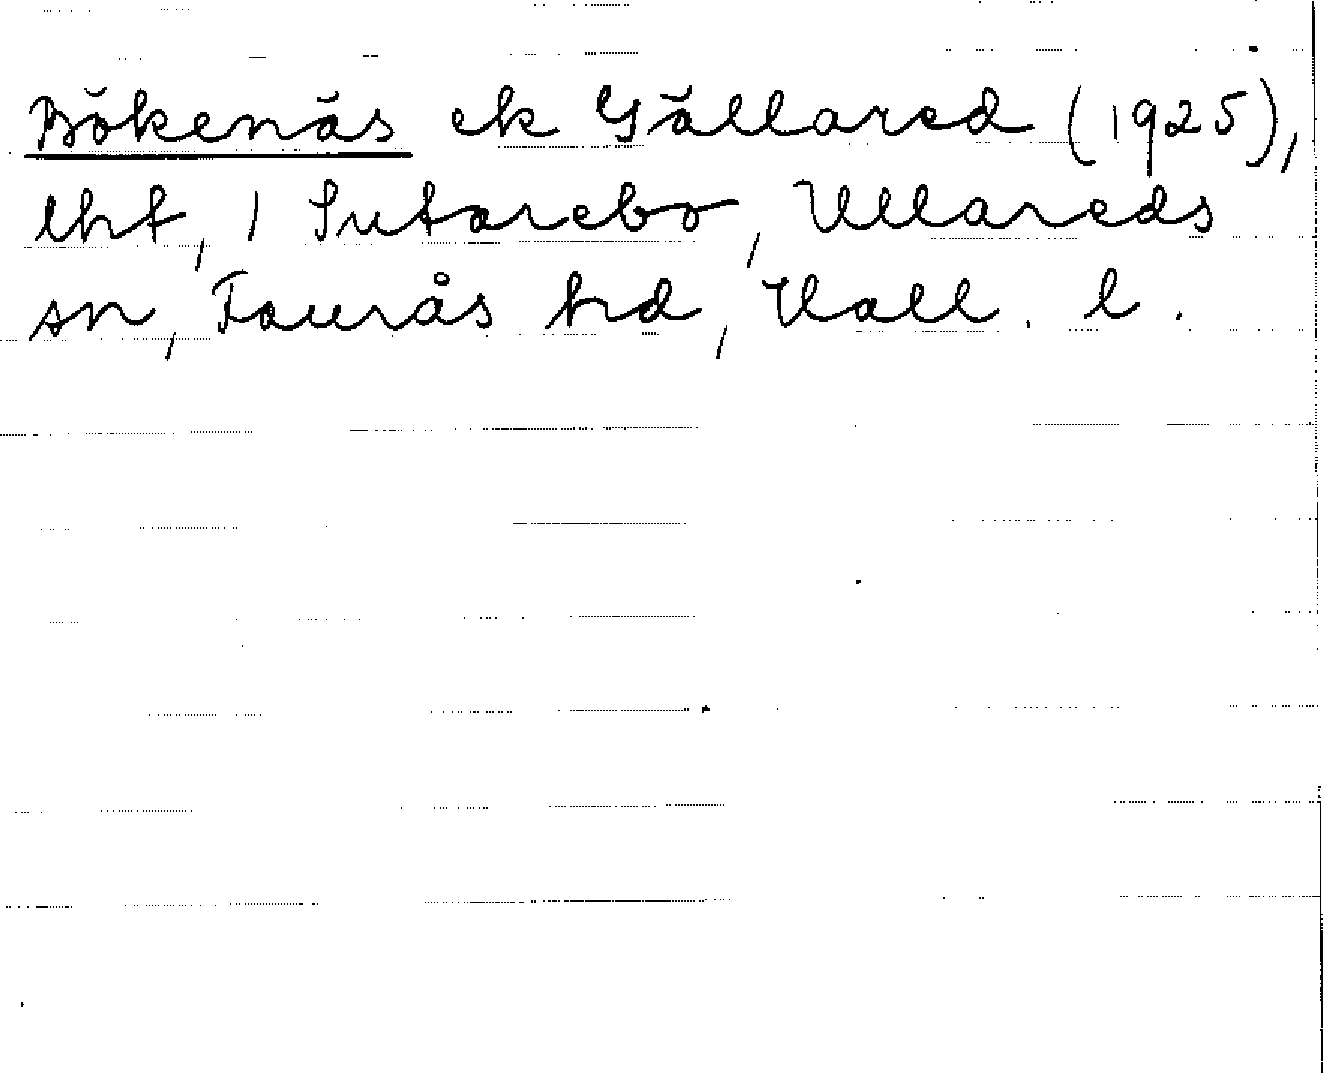 Bökenäs ek Gällared (1925),
lht, 1 Sutarebo, Ullareds
sn, Faurås hd, Hall. l.